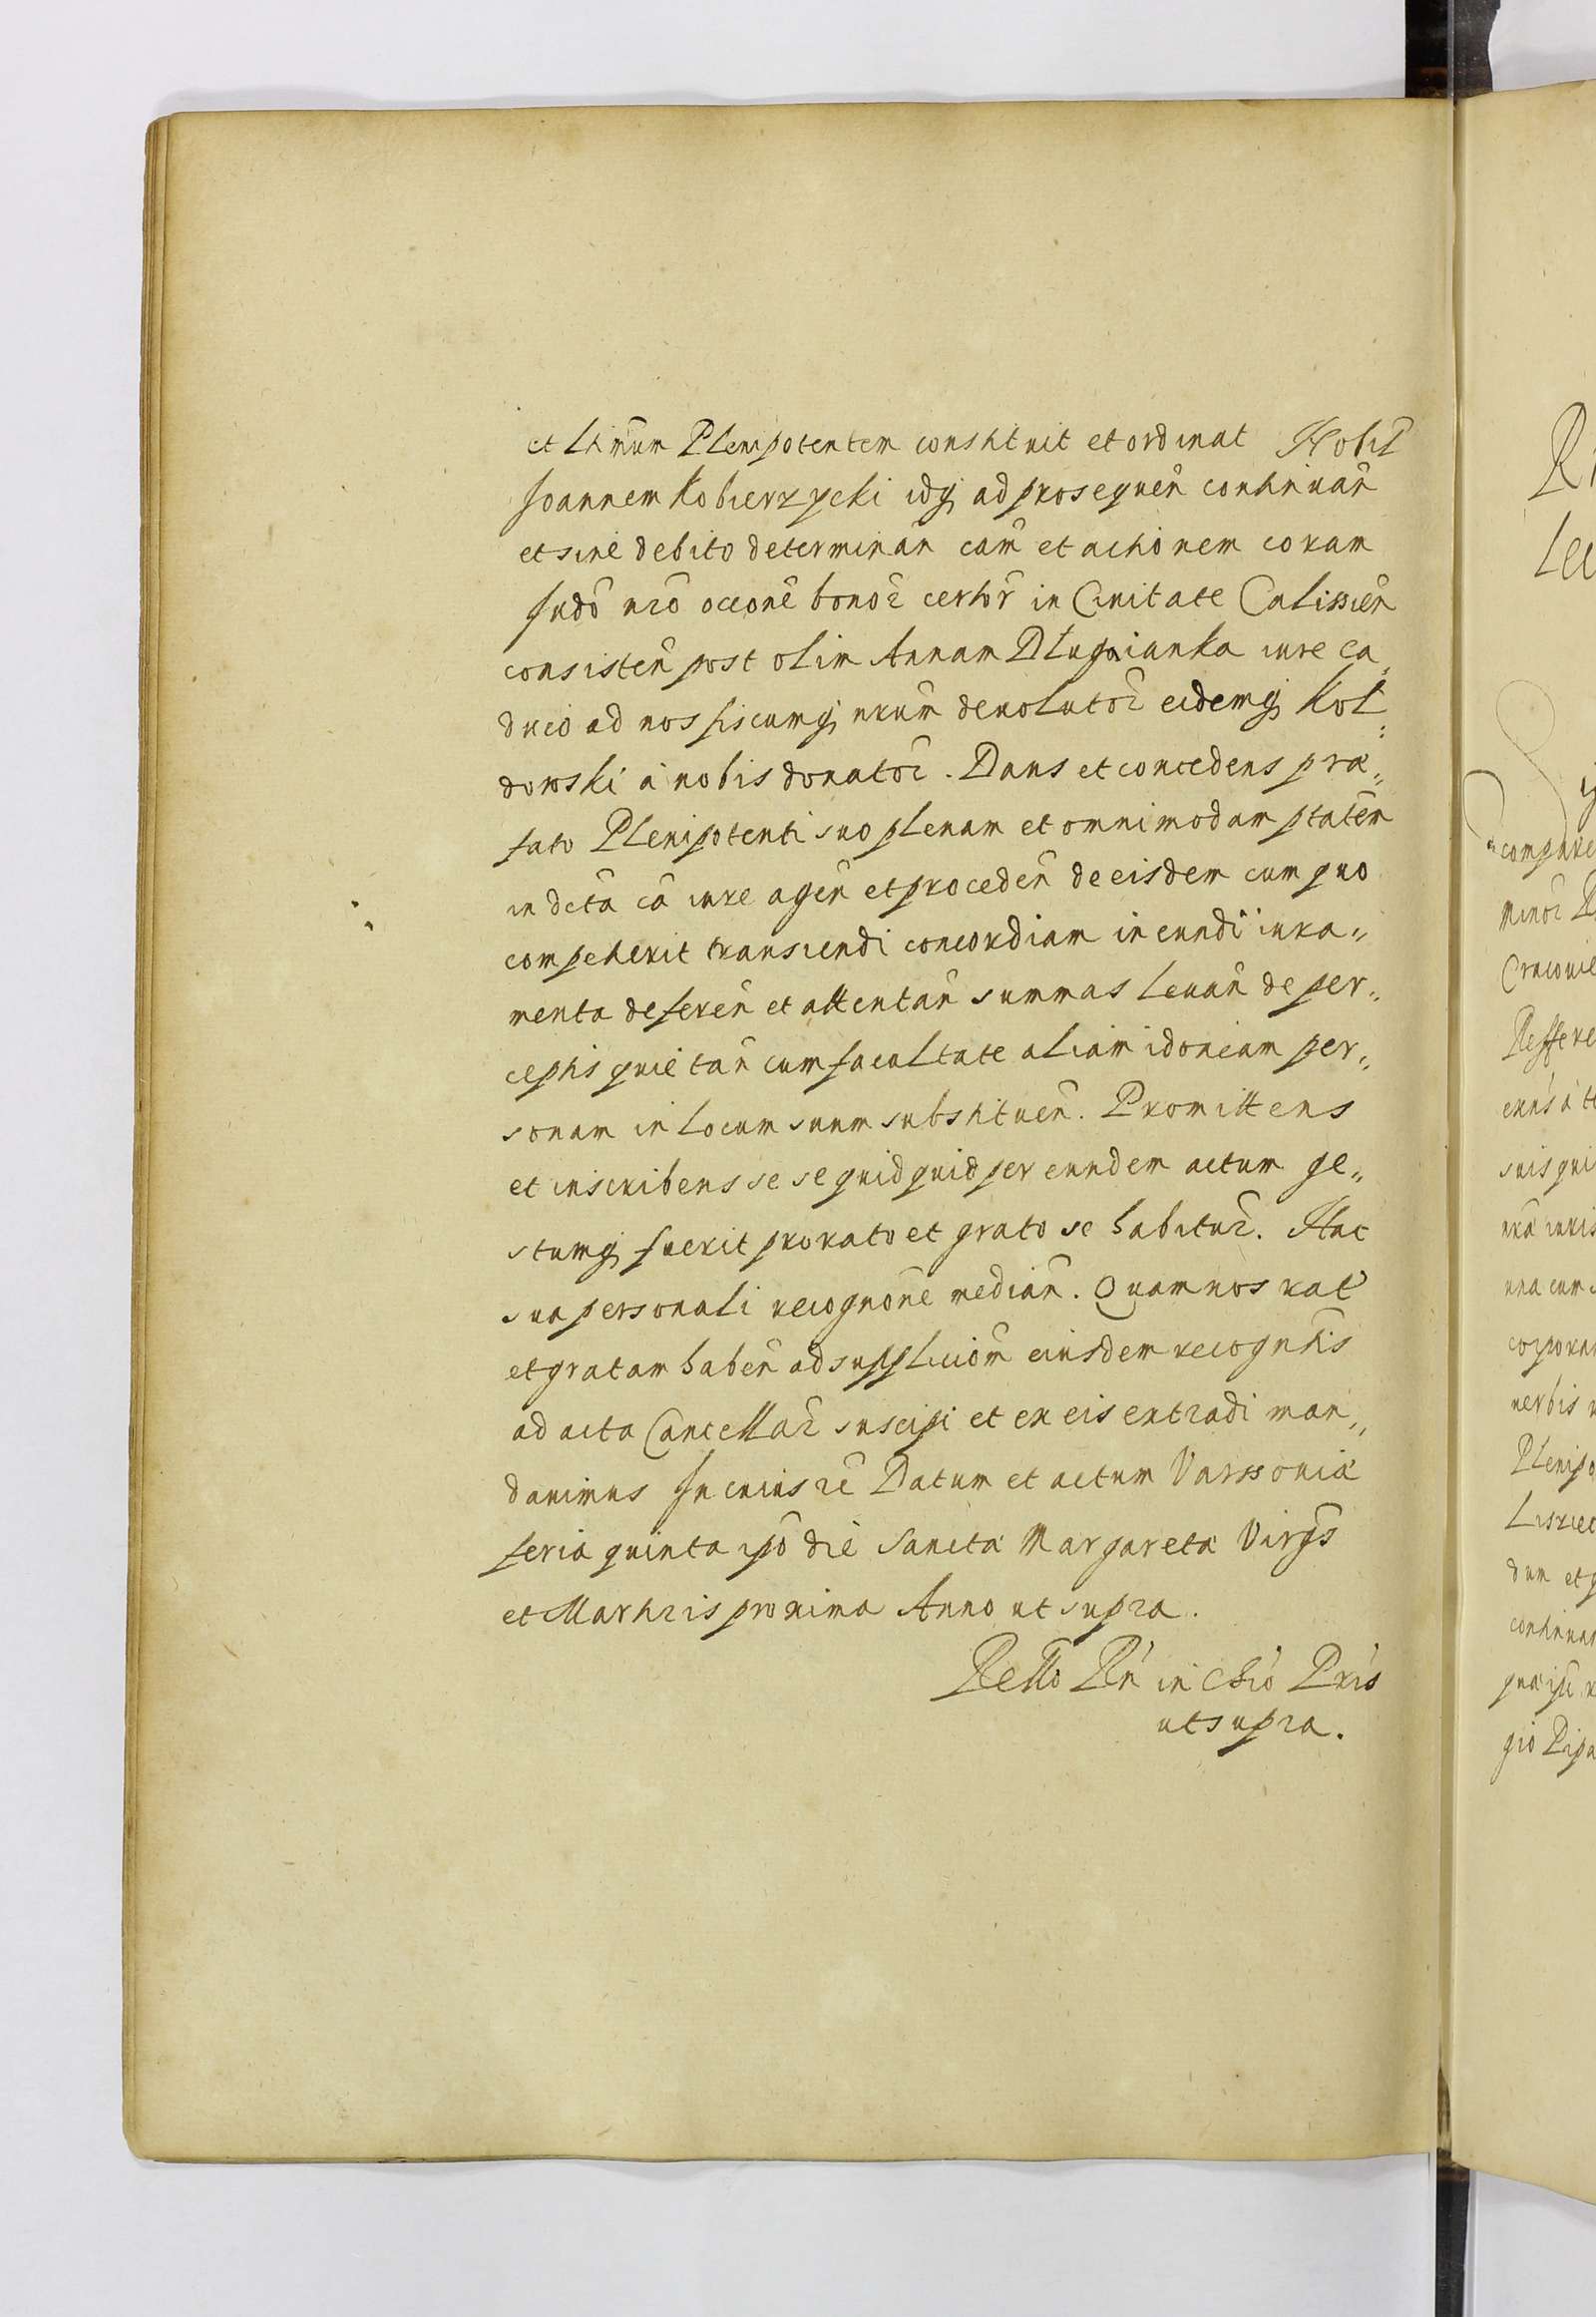 et ltimum Plenipotentem constituit et ordinat Nobil
Joannem Kobierzycki idq̨ ad prosequeñ continuañ
et sine debito determinañ cam̃ et actionem coram
Judõ nrõ occõne bonor̃ certor̃ in Ciuitate Calissieñ
consisteñ post olim Annam Dlugaianka iure ca„
duco ad nos fiscumq̨ nrum̃ deuolutor̃ eidemq̨ Kol„
dowski à nobis donator̃. Dans et concedens præ„
fato Plenipotenti suo plenam et omnimodam ptatem̃
in dcta cã iure ageñ et procedeñ de eisdem cum quo
competierit transiendi concordiam in eundi iura„
menta defereñ et attentañ summas leuañ de per„
ceptis quietañ cum facultate aliam idoneam per„
sonam in locum suum substitueñ. Promittens
et inscribens se se quidquid per eundem actum ge„
stumq̨ fuerit pro rato et grato se habitur̃. Hac
sua personali recognõne mediañ. Quam nos rat̃
et gratam habeñ ad supplicciõm eiusdem recogntis
ad acta Cancellar̃ suscipi et ex eis extradi man„
dauimus In cuius rẽ Datum et actum Varssouiæ
feria quinta ipõ die Sanctæ Margaretæ Virgs̃
et Martiris proxima Anno ut supra.
Rello Rñ in Chiõ Pris
ut supra.
Ri
Lec
compare
minor̃
Cracouie
Reffere
suis qui
nra iuris
una cum
corporan
uerbis
Plenipo
dum et
continuan